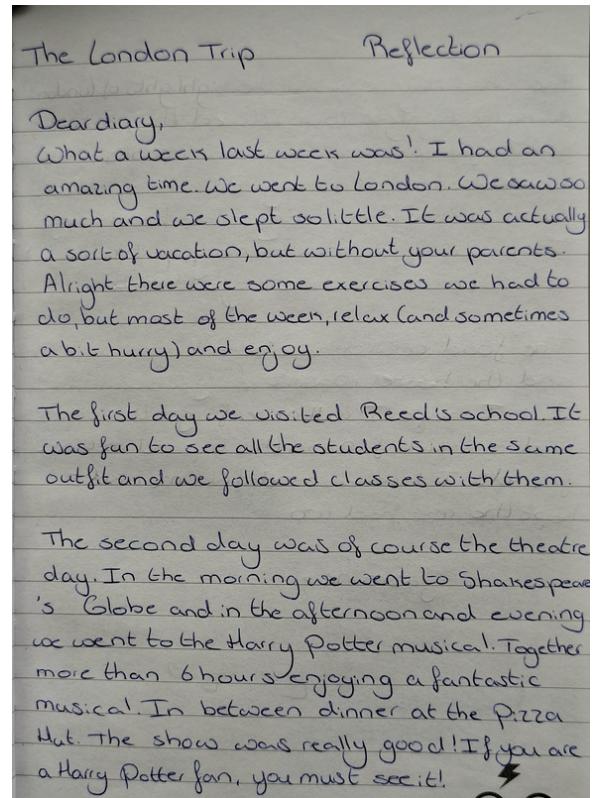 The London Trip Reflection
Dear diary,
What a week last week was! I had an
amazing time. We went to London. We saw so
much and we slept so little. It was actually
a sort of vacation, but without your parents.
Alright there were some exercises we had to
do, but most of the week, relax (and sometimes
a bit hurry) and enjoy.
The first day we visited Reed's school. It
was fun to see all the students in the same
outfit and we followed classes with them.
The second day was of course the theatre
day. In the morning we went to Shakespeare
's Globe and in the afternoon and evening
we went to the Harry Potter musical. Together
more than 6 hours enjoying a fantastic
musical. In between dinner at the Pizza
Hut. The show was really good! If you are
a Harry Potter fan, you must see it!